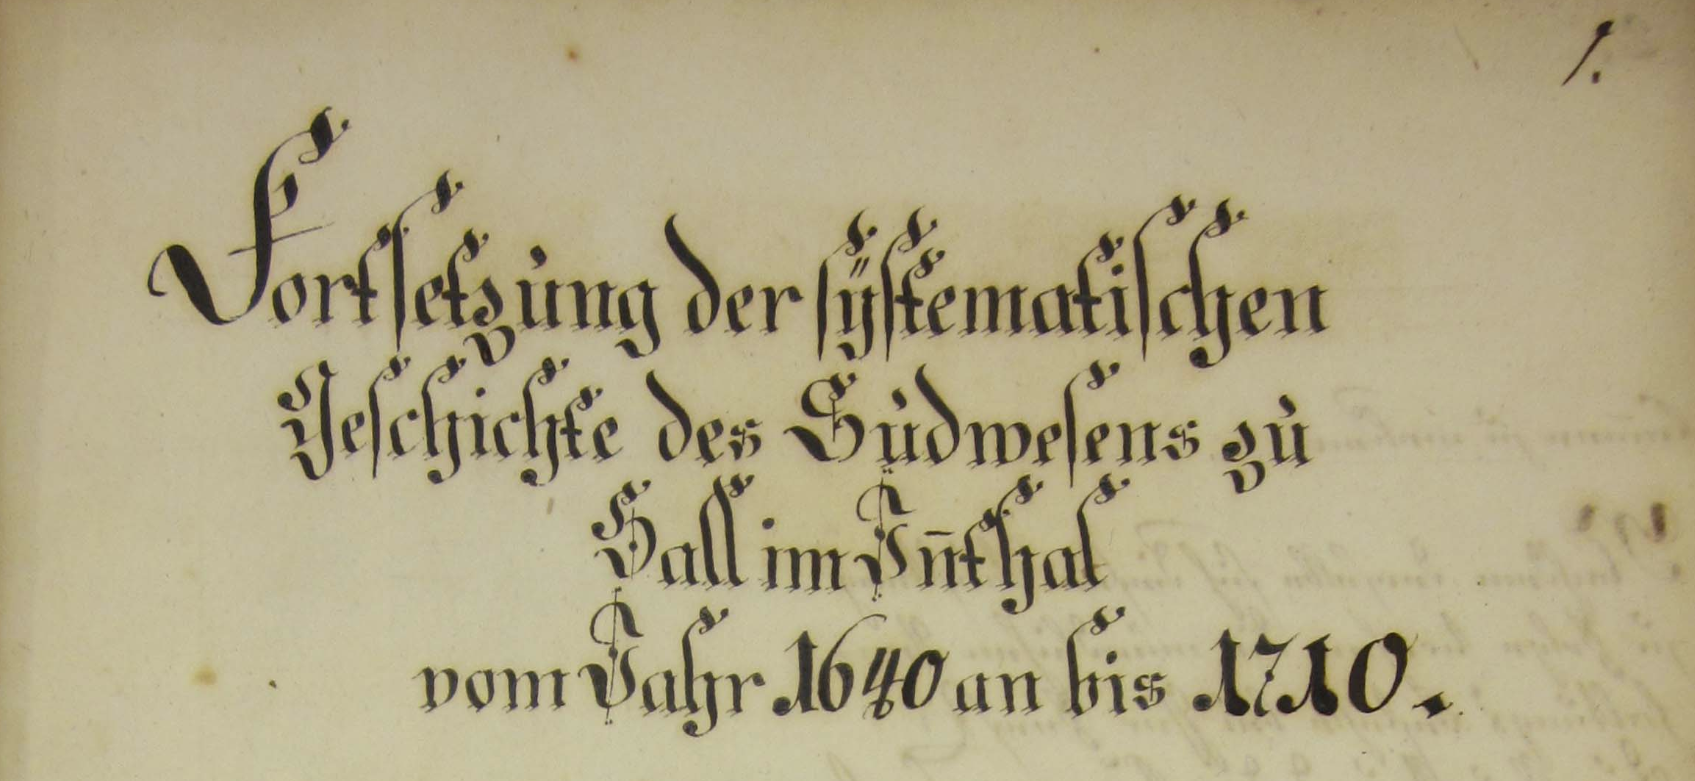 1.
Fortsetzung der sÿstematischen
Geschichte des Sudwesens zu
Hall im Iñthal
vom Jahr 1640 an bis 1710.